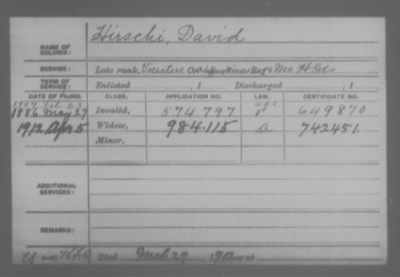 NAME OF SOLDIER: Hirschi, David
SERVICE: Late rank, Mo H. Gds
TERM OF SERVICE: Enlisted , 1 Discharged , 1
DATE OF FILING. CLASS. APPLICATION NO. LAW. CERTIFICATE NO.
1886 May 27 Invalid, 574797 649870
1912 Apr 5 Widow, 984.115 a 742451
Minor,
ADDITIONAL SERVICES:
REMARKS:
Died Mch 29, 1912, at